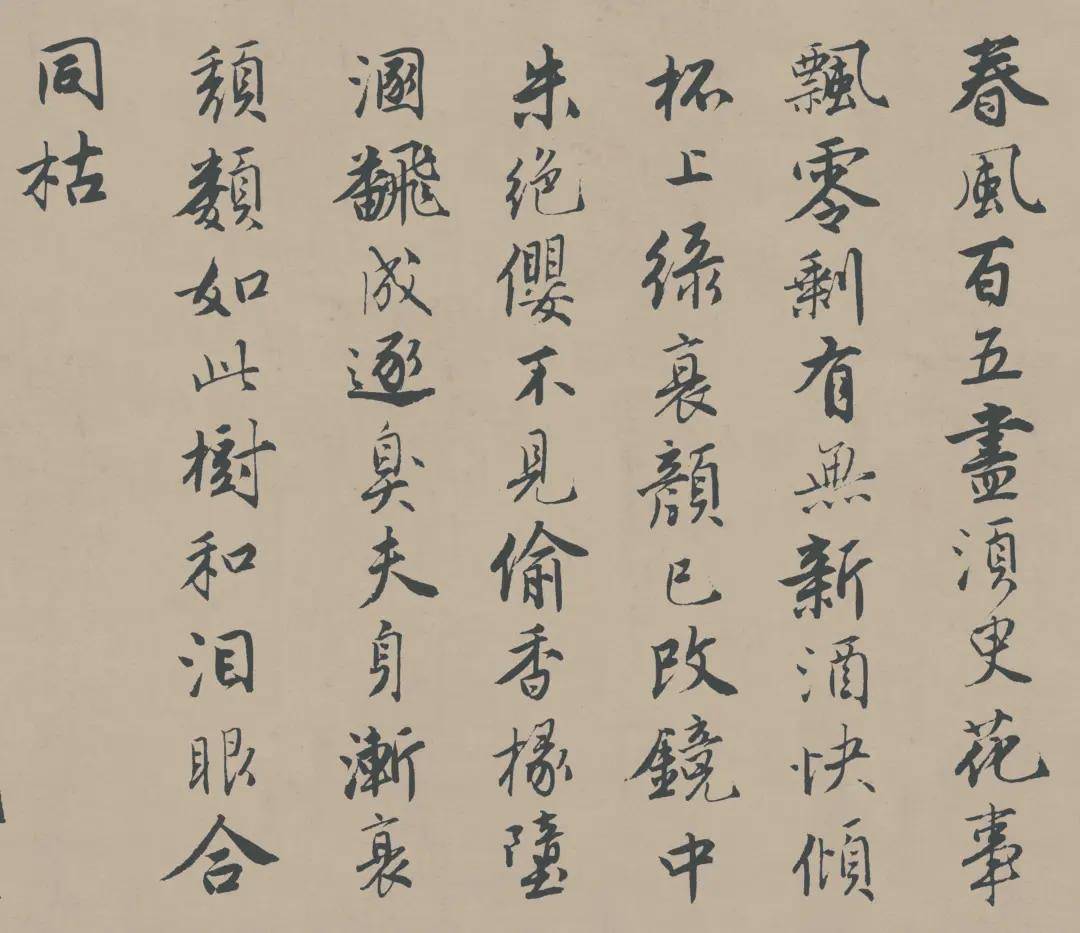 春風百五盡湏臾花事
飄零剩有無新酒快傾
杯上綠衰顏已改鏡中
朱絕纓不見偷香椽墮
溷飜成逐臭夫身漸衰
頹類如此樹和泪眼合
同枯